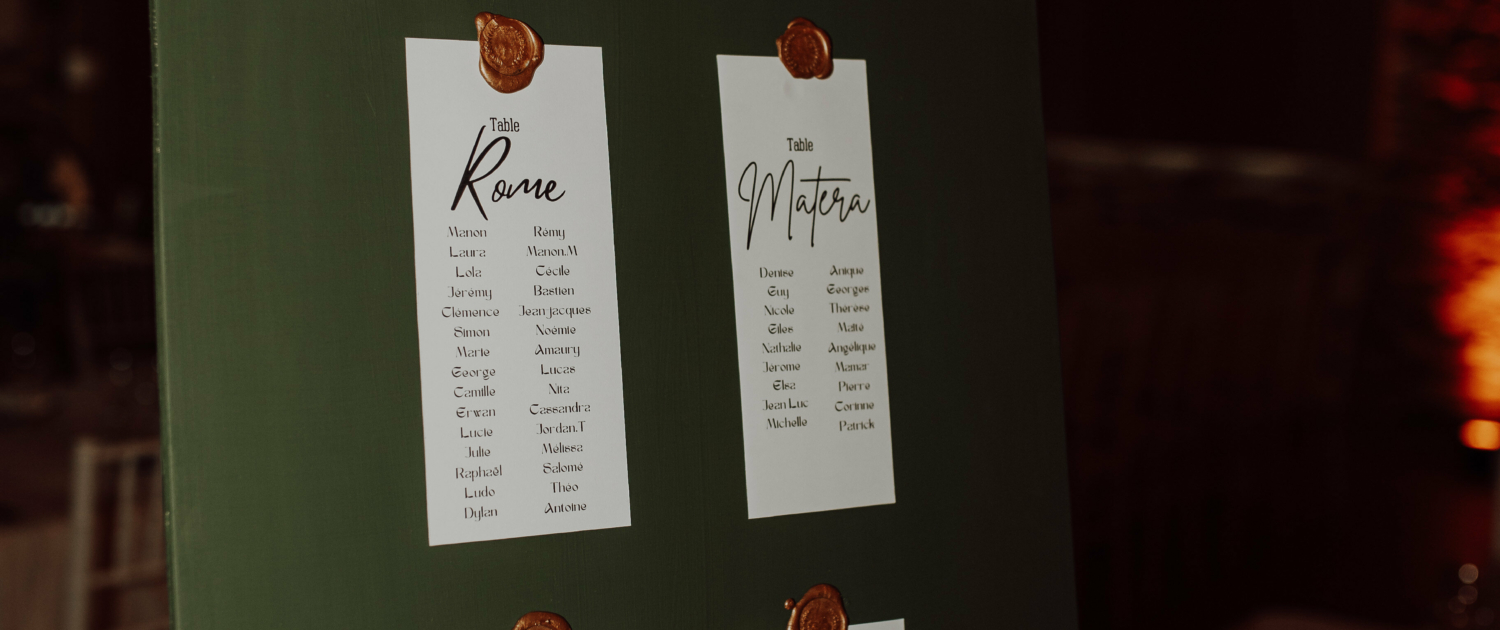 Table
Rome
Manon Rémy
Laura Manon.M
Lola Cécile
Jérémy Bastien
Clémence Jean jacques
Simon Noémie
Marie Amaury
George Lucas
Camille Nita
Erwan Cassandra
Lucie Jordan.T
Julie Mélissa
Raphaël Salomé
Ludo Théo
Dylan Antoine
Table
Matera
Denise Anique
Guy Georges
Nicole Thérèse
Gilles Maïté
Nathalie Angélique
Jérome Mamar
Elsa Pierre
Jean Luc Corinne
Michelle Patrick